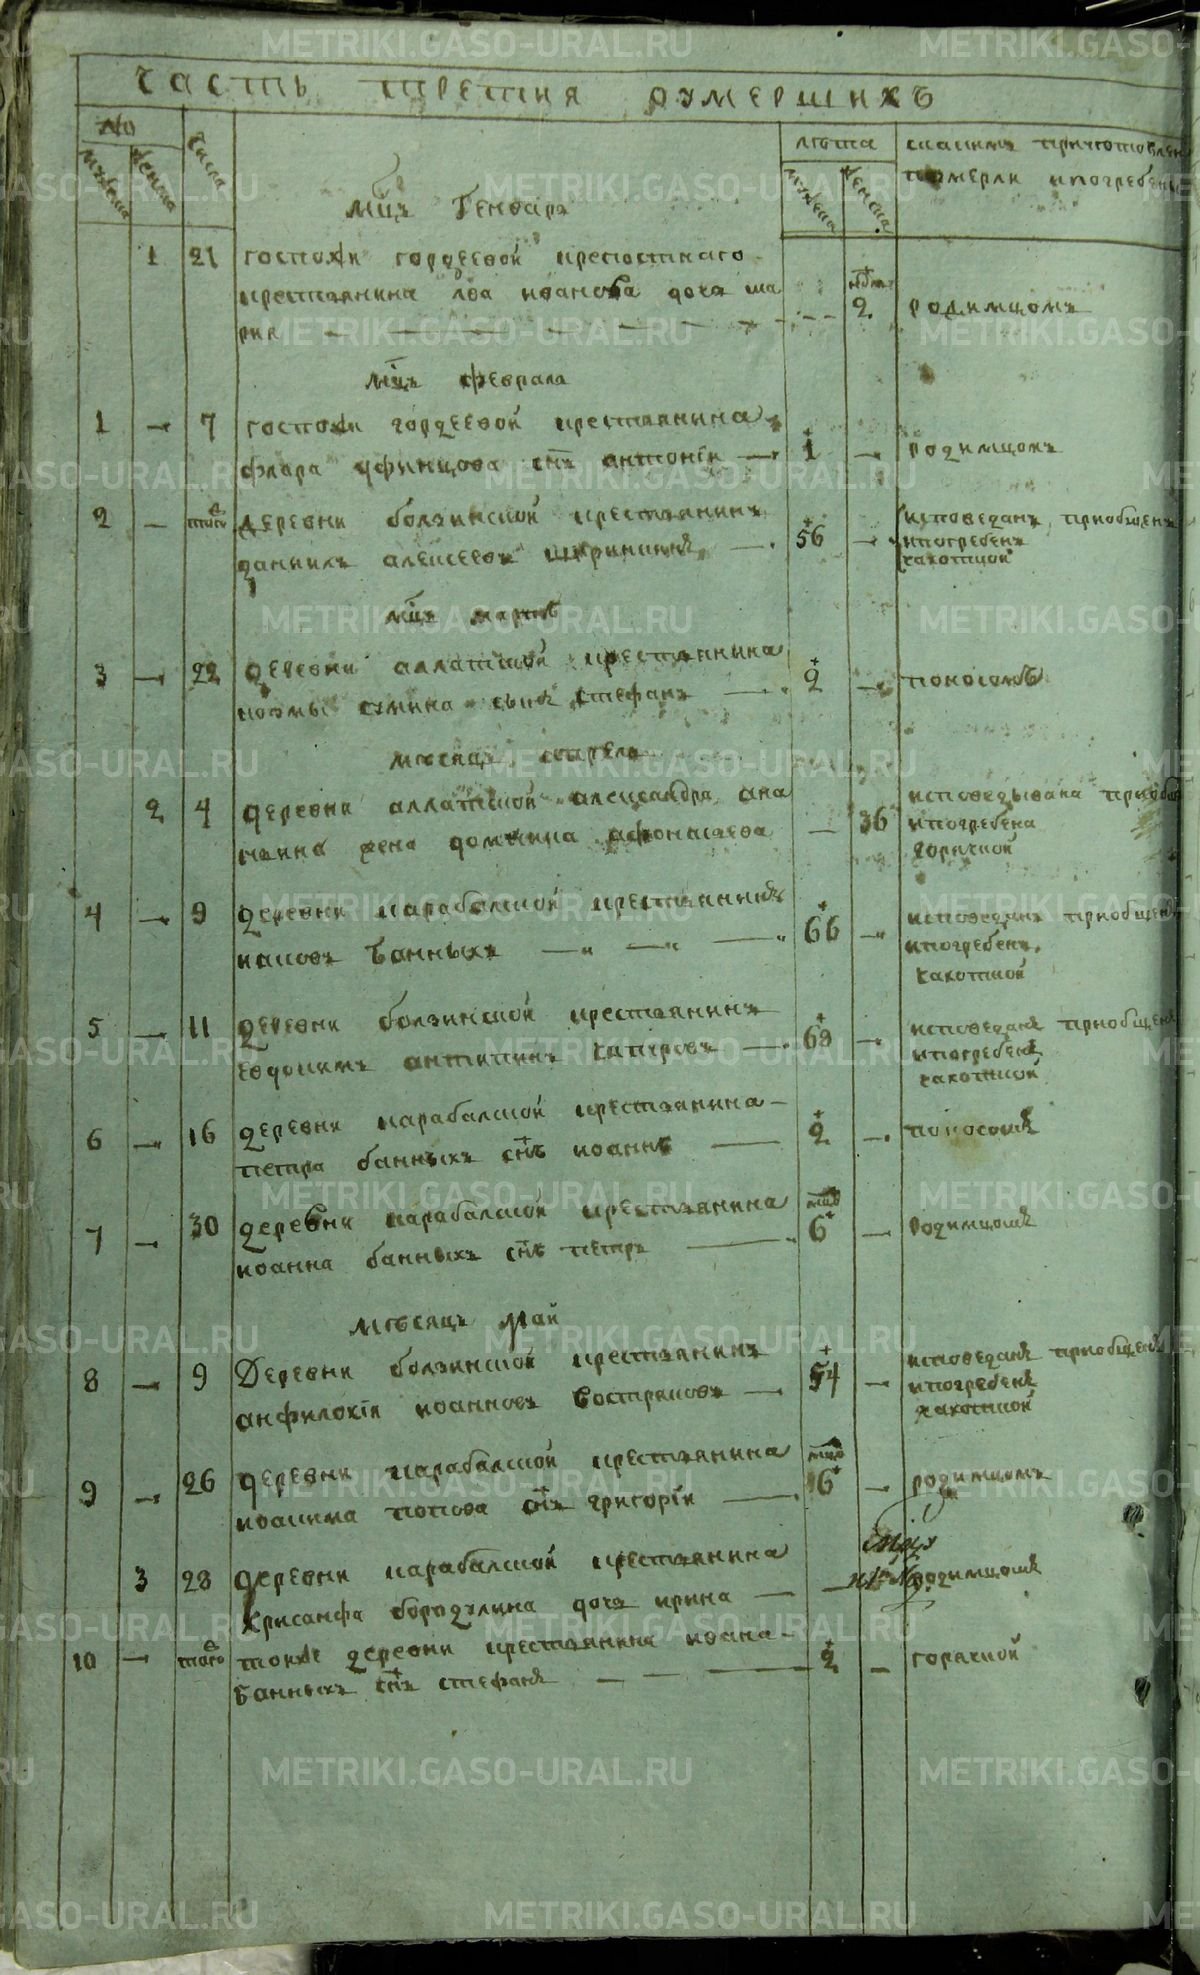 METRIKI.GASO-URAL.RU
часть третия оумершихъ
№
мужеска женска числа
лѣта
мужеска женска
померли и погребены
Мцъ Генварь
1 21 госпожи гордеевой крепостнаго
крестьянина лва иванова дочь ма
рия
недель
2 родимцомъ
Мцъ февраль
1 7 госпожи гордеевой крестьянина
флора уфинцова снъ антоній 1 родимцомъ
2 того деревниболзинской крестьянинъ
даниилъ алексеевъ 56 исповеданъ приобщенъ
и погребенъ
чахоткой
Мцъ мартъ
3 22 деревни аллатской крестьянина
козмы сумина сынъ стефанъ 2 поносомъ
месяцъ апрель
2 4 деревни аллатской александра ана
ньина жена домника афонасьева 36 исповедывана приобщ
и погребена
горячкой
4 9 деревни карабалской крестьянинъ
иаковъ банныхъ 66 исповеданъ приобщенъ
и погребенъ
чахоткой
5 11 деревни болзинской крестьянинъ
евдокимъ антипинъ 68 исповеданъ приобщенъ
и погребенъ
чахоткой
6 16 деревни карабалской крестьянина
петра банныхъ снъ иоаннъ 2 поносомъ
7 30 деревни карабалской крестьянина
иоанна банныхъ снъ петръ мцъ 6 родимцомъ
Мѣсяцъ май
8 9 Деревни болзинской крестьянинъ
анфилохія иоанновъ востряковъ 54 исповеданъ приобщенъ
и погребенъ
чахоткой
9 26 деревни карабалской крестьянина
иоакима попова снъ григорій мцъ 6 родимцомъ
3 28 деревни карабалской крестьянина
хрисанфа бородулина дочь ирина родимцомъ
10 того тойже деревни крестьянина ивана
банныхъ снъ стефанъ 2 горячкой